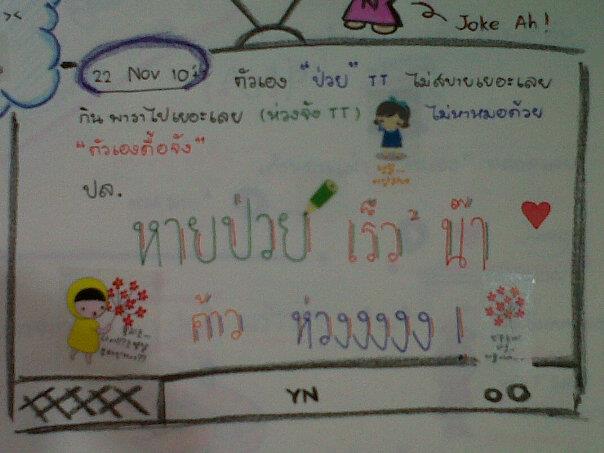 ><
N
Joke Ah!
22 Nov 10
ตัวเอง "ป่วย" TT ไม่สบายเยอะเลย
กินพาราไปเยอะเลย (ห่วงจัง TT) ไม่หาหมอด้วย
"ตัวเองดื้อจัง"
ปล.
หายป่วย เร็วๆ น๊า
ค้าว ห่วงงงงง !
YN